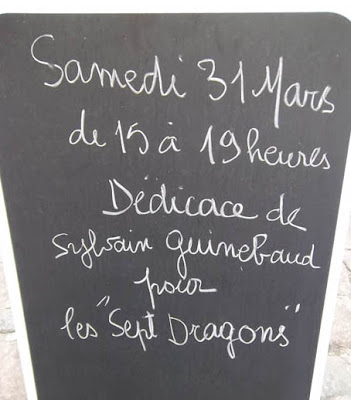 Samedi 31 Mars
de 15 à 19 heures
Dédicace de
Sylvain Guinebaud
pour
les "Sept Dragons"